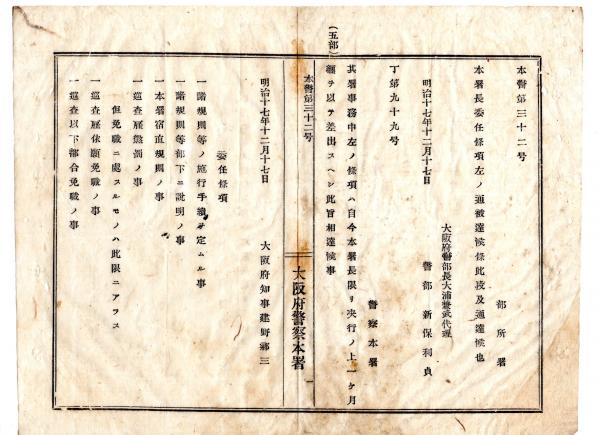 (五部)
本警第三十二号
部所署
本署長委任條項左ノ通被達候條此段及通達候也
大阪府警部長大浦兼武代理
警部新保利貞
明治十七年十二月十七日
丁第九十九号
警察本署
其署事務中左ノ條項ハ自今本署長限リ決行ノ上一ケ月
纏ヲ以テ差出スヘシ此旨相達候事
本警第三十二号
大阪府警察本署
一
明治十七年十二月十七日
大阪府知事建野郷三
委任條項
一諸規則等ノ施行手續ヲ定ムル事
一諸規則等部下ニ説明ノ事
一本署宿直規則ノ事
一巡査雇懲罰ノ事
但免職ニ處スルモノハ此限ニアラス
一巡査雇依願免職ノ事
一巡査以下部合免職ノ事